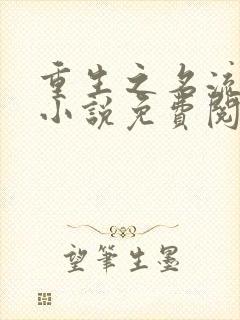 重生之名流
小說免費閱
望筆生墨